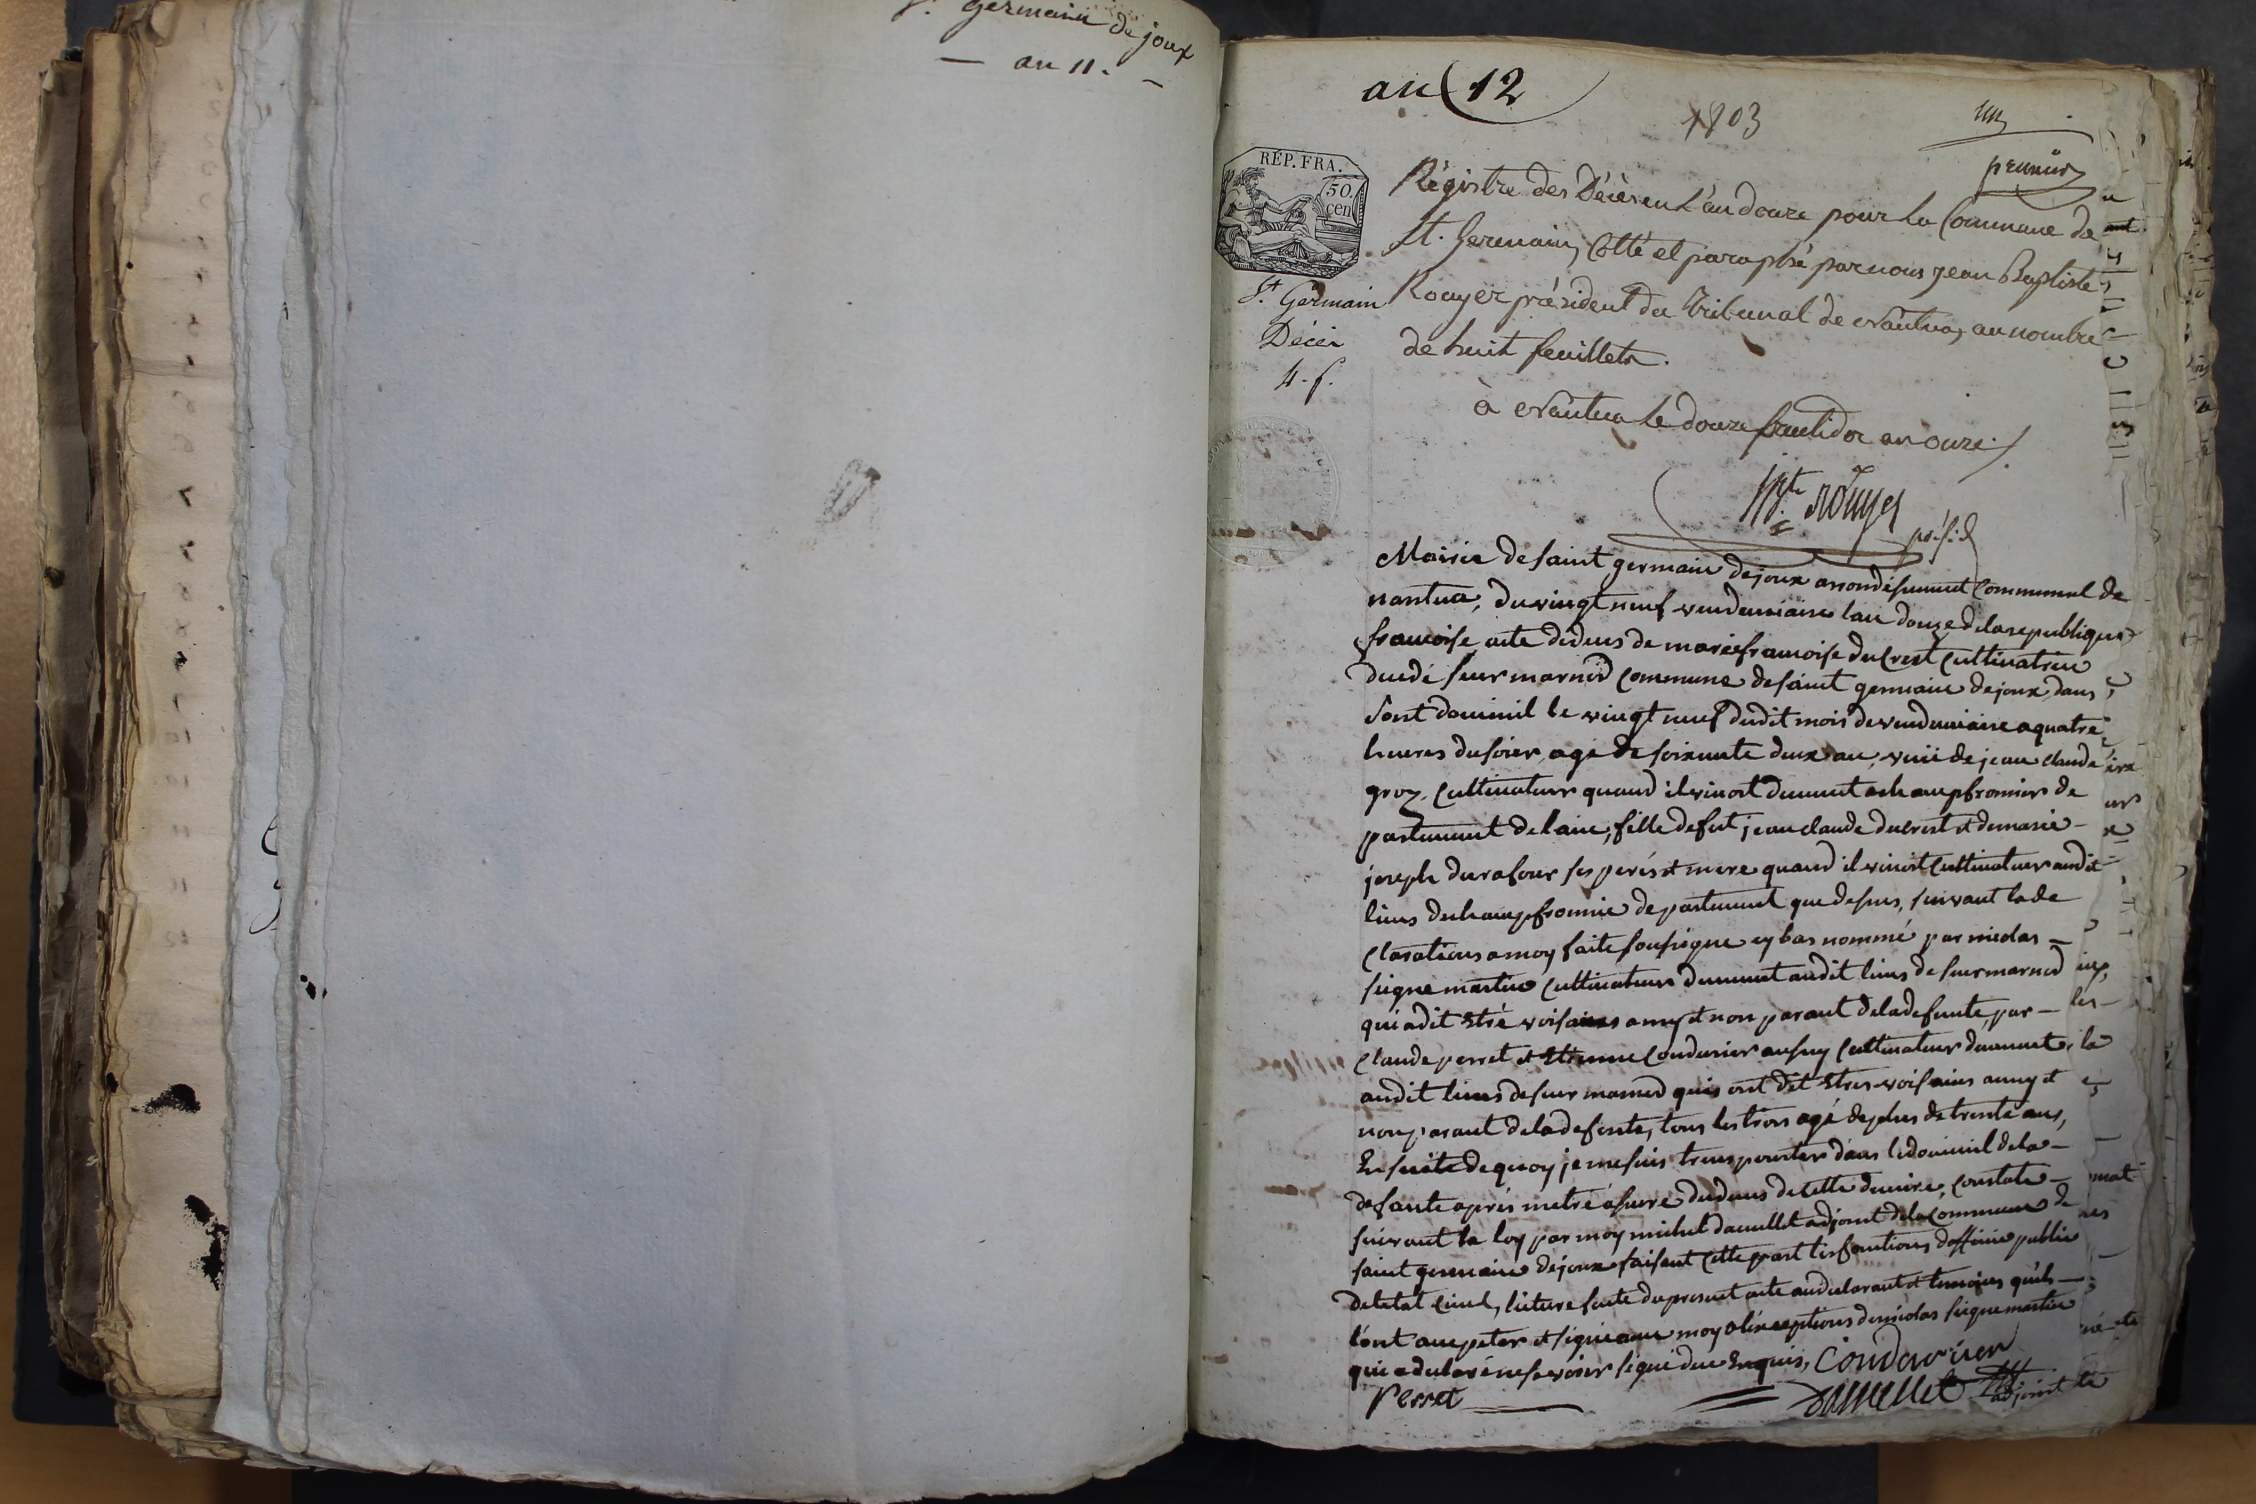 St. Germain de joux
— an 11. —
an 12
1803
un
premier
RÉP. FRA.
50.
cen
St. Germain
Décès
4. f.
Régistre des Décès en L'an douze pour la Commune de
St. Germain, Cotté et paraphé par nous Jean Baptiste
Rouyer président du Tribunal de Nantua, au nombre
de huit feuillets.
à Nantua le douze fructidor an onze.
JBte Rouyer
présid
Mairie de saint germain dejoux arrondisement Communal de
nantua, du vingt neuf vendemiaire lan douze delarepublique
francoise acte dedeces de mariefrancoise duCrest Cultivatrice
decedé sur marnod Commune desaint germain dejoux dans
sont domicil le vingt neuf dudit mois devendemiaire aquatre
heures dusoier, agé de soixante deux an, veuve de jean claude
groz, Cultivateur quand ilvivoit demeurant achampfromier de
partement delain, fille defut jean claude ducrest et demarie
joseph durafour ses peres et mere quand il vivoit Cultivateur audit
lieus dechampfromier departement que desus, suivant lade
clarations amoy faite sousigne cy bas nommé par nicolas
signemartin Cultivateur demeurant audit lieus de surmarnod
qui adit etre voisaines amy et non parant deladefunte, par
Claude perret et Etienne Condurier ausuy Cultivateur demeurant
audit lieus desur marnod quis ont dit etres voisaines amy et
non parant deladefunte, tous lestrois agé deplus de trente ans,
Ensuite dequoy jemesuis transpourter dans ledomicil dela
defunte apres metre asuré dudeces decette derniere, constate
suivant la loy par moy michel daméllet adjoint dela Commune de
saint germain dejoux faisant Cette part lesfonctions dofficier public
deletat civil, licture faite dupresent acte audeclarant et temoins quils
lont accepter et signé avec moy alexceptions denicolas signemartin
qui adeclaré nesavoir signé due Enquis, Condurier
Perret
Damellet adjoint